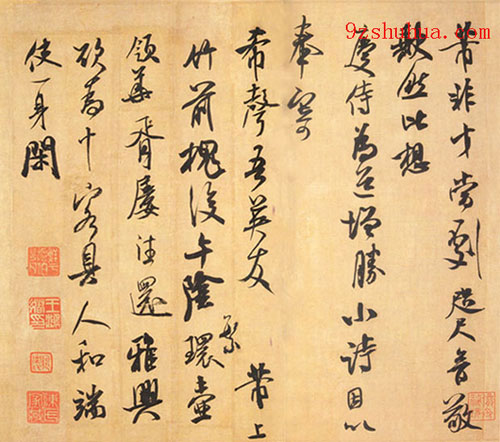 9zshuhua.com
芾非才當劇咫尺音敬
闕然比想
慶侍為道增勝小詩因以
奉寄
希聲吾英友 芾上
竹前槐後午陰繁環壺
領華胥屢往還雅興
欲為十客具人和端
使一身閑